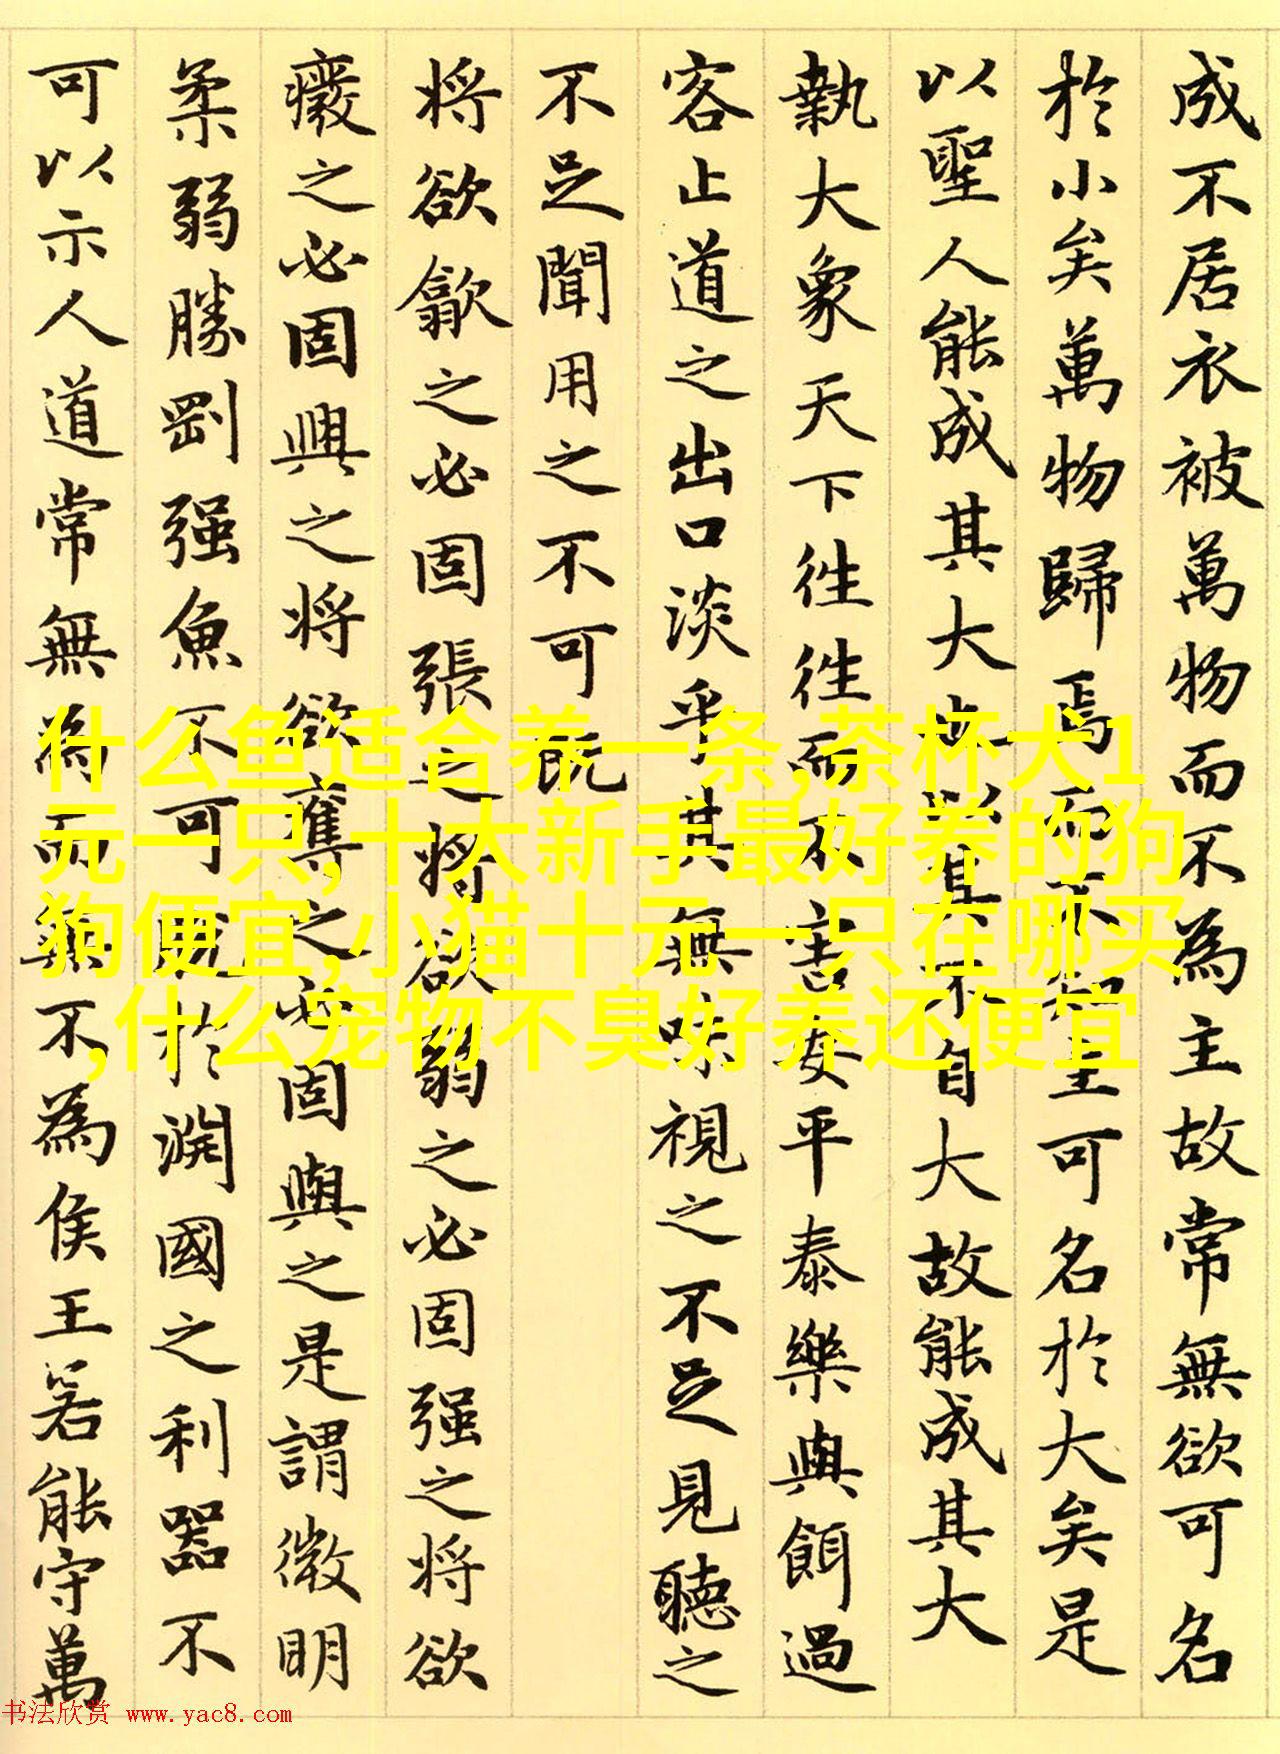 成不居衣被萬物而不為主故常無欲可名
於小矣萬物歸焉而不知主可名於大矣是
以聖人能成其大也以其不自大故能成其大
執大象天下徃徃而不害安平泰樂與餌過
客止道之出口淡乎其無味視之不足見聽之
不足聞用之不可既
将欲歙之必固張之将欲弱之必固强之将欲
癈之必固興之将欲奪之必固與之是謂微明
柔弱勝剛强魚不可脱於淵國之利器不
可以示人道常無為而無不為侯王若能守萬
什么鱼适合养一条,茶杯犬1
元一只,十大新手最好养的狗
狗便宜,小猫十元一只在哪买
,什么宠物不臭好养还便宜
书法欣赏 www.yac8.com